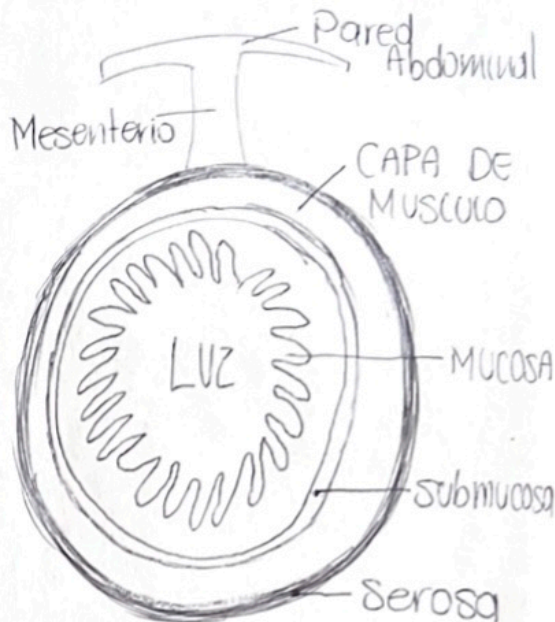 Pared
Abdominal
Mesenterio
CAPA DE
MUSCULO
LUZ
MUCOSA
submucosa
Serosa